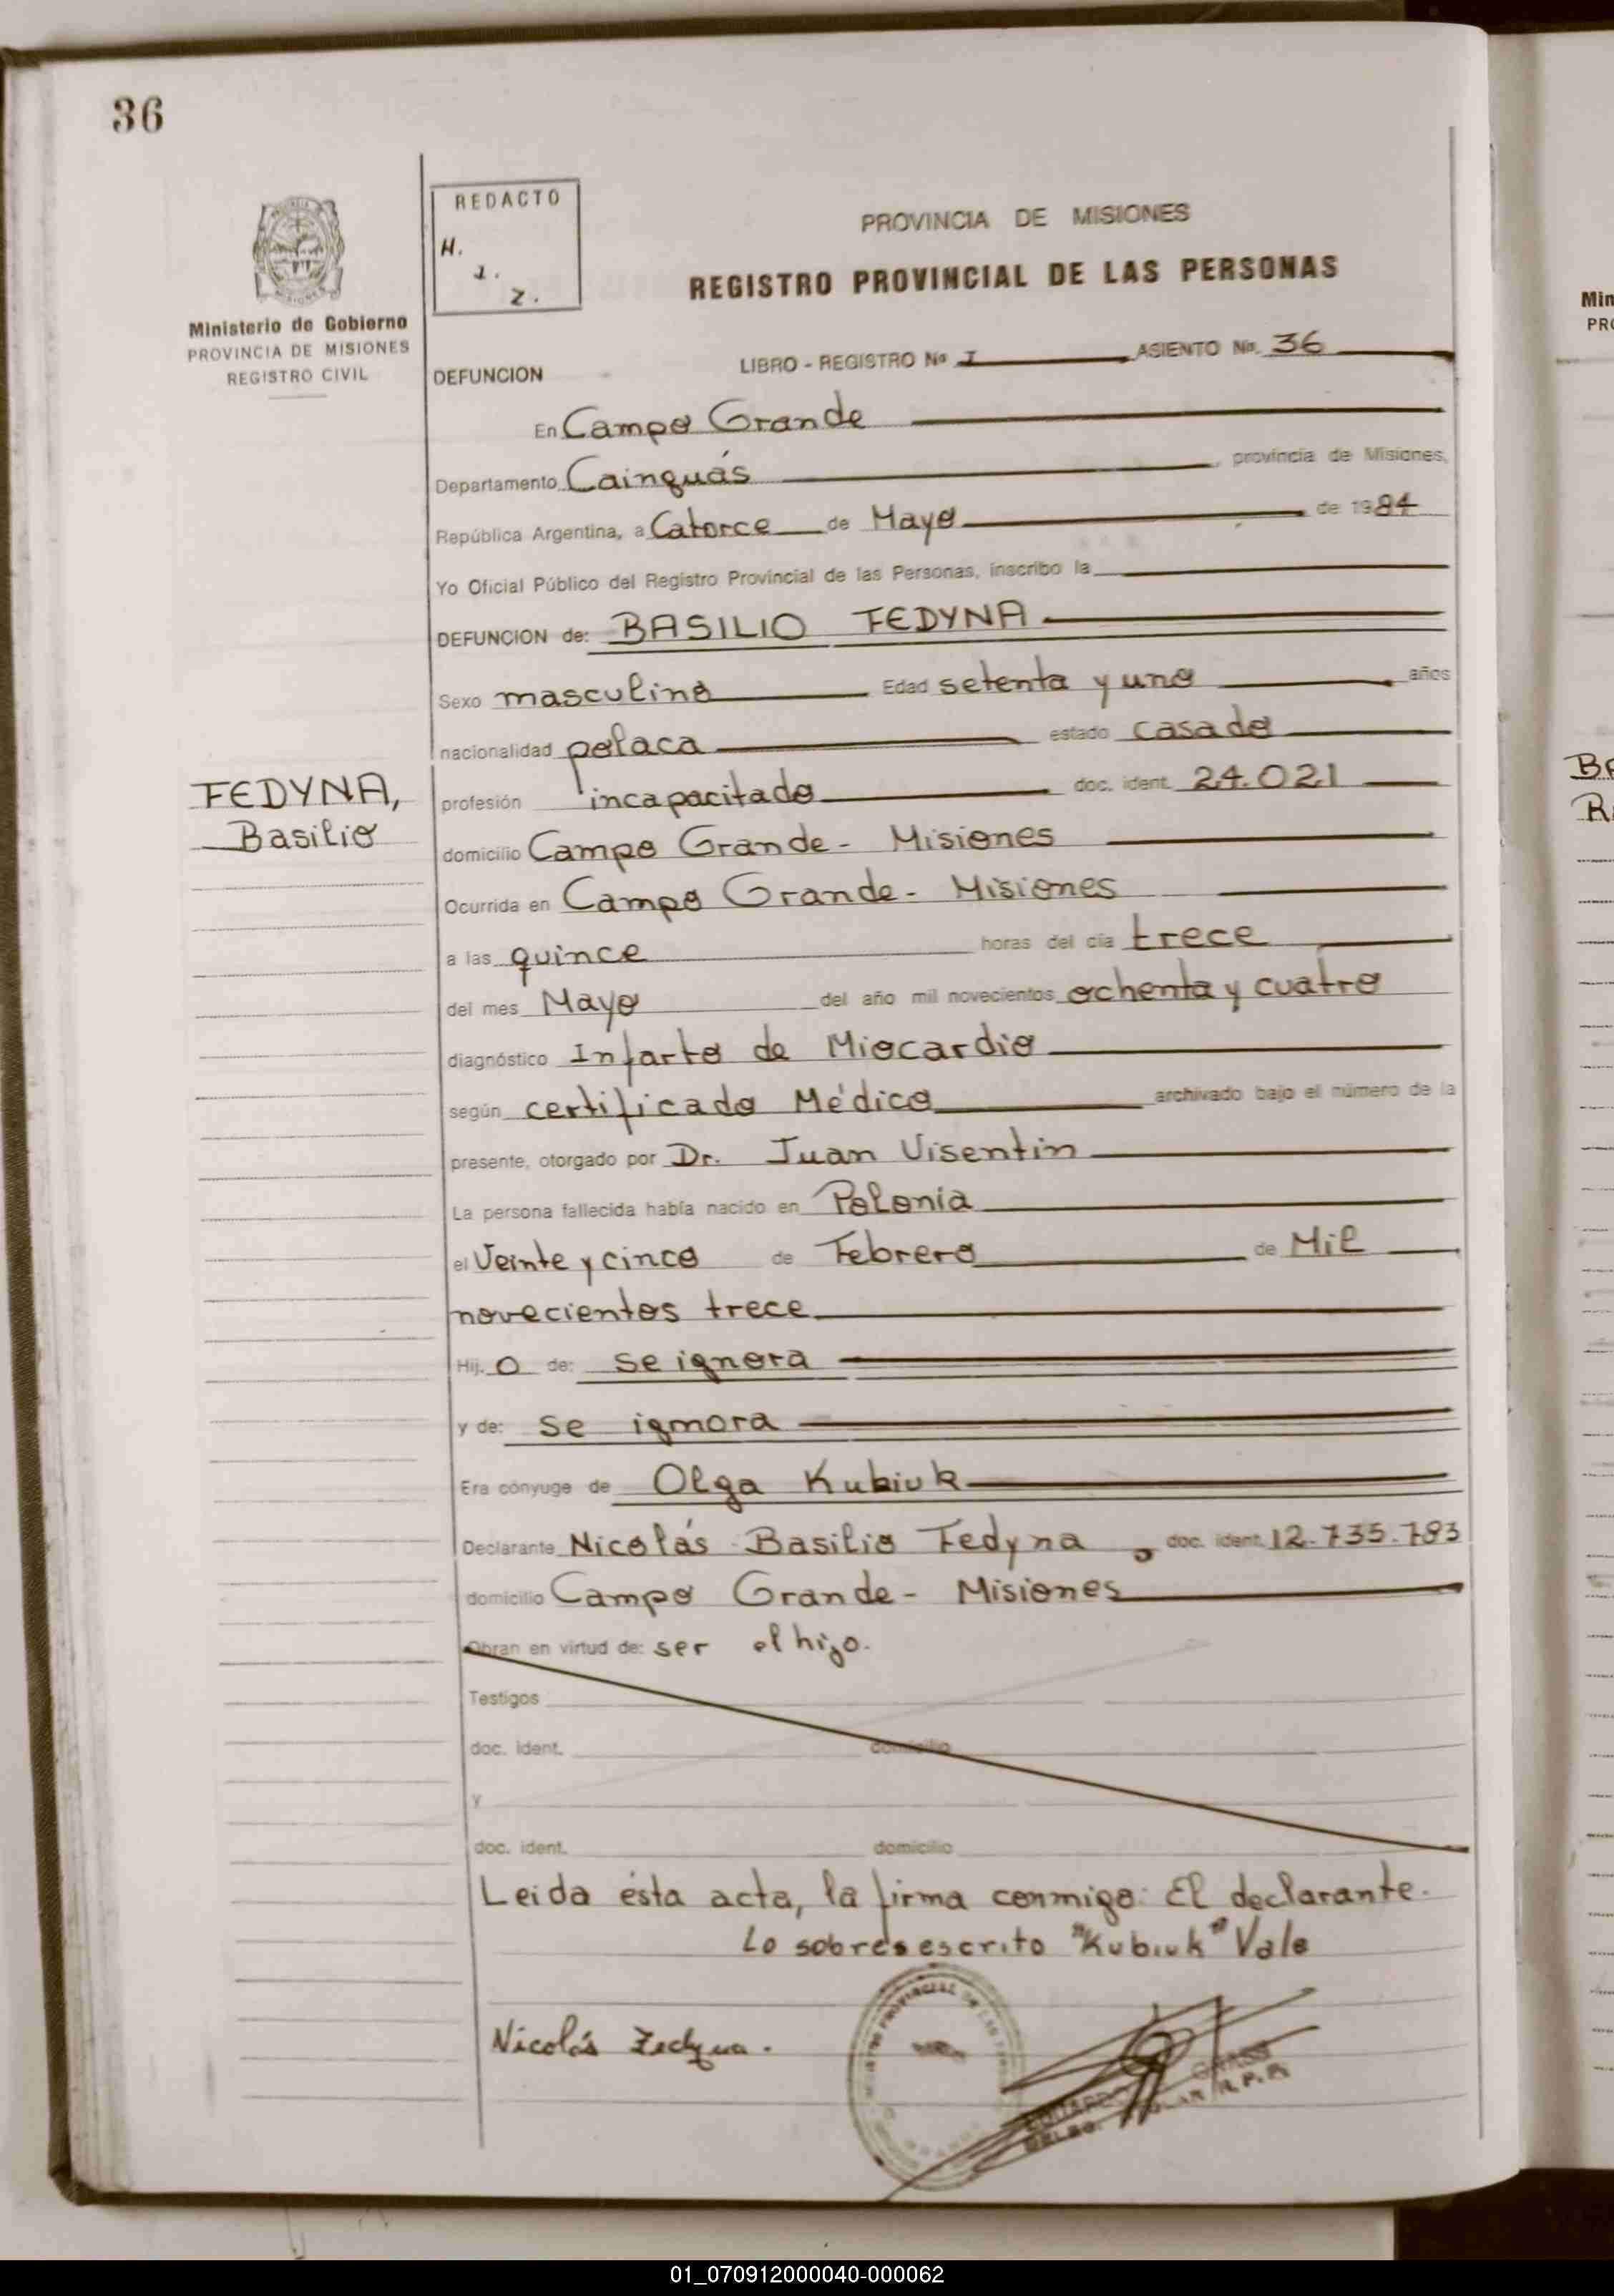 36
REDACTO
H.
1.
Z.
Ministerio de Gobierno
PROVINCIA DE MISIONES
REGISTRO CIVIL
PROVINCIA DE MISIONES
REGISTRO PROVINCIAL DE LAS PERSONAS
LIBRO - REGISTRO No I ASIENTO No. 36
DEFUNCION
En Campo Grande
Departamento Cainguás, provincia de Misiones,
República Argentina, a Catorce de Mayo de 1984
Yo Oficial Público del Registro Provincial de las Personas, inscribo la
DEFUNCION de: BASILIO FEDYNA
Sexo masculino Edad setenta y uno años
nacionalidad polaca estado casado
FEDYNA,
Basilio
profesión incapacitado doc. ident. 24.021
domicilio Campo Grande - Misiones
Ocurrida en Campo Grande - Misiones
a las quince horas del día trece
del mes Mayo del año mil novecientos ochenta y cuatro
diagnóstico Infarto de Miocardio
según certificado Médico archivado bajo el número de la
presente, otorgado por Dr. Juan Visentin
La persona fallecida había nacido en Polonia
el Veinte y cinco de Febrero de Mil
novecientos trece
Hij. o de: se ignora
y de: se ignora
Era cónyuge de Olga Kubiuk
Declarante Nicolás Basilio Fedyna, doc. ident. 12.735.783
domicilio Campo Grande - Misiones
Obran en virtud de: ser el hijo.
Testigos
doc. ident. domicilio
y
doc. ident. domicilio
Leida ésta acta, la firma conmigo: El declarante.
Lo sobreescrito "Kubiuk" Vale
Nicolás Fedyna.
01_070912000040-000062